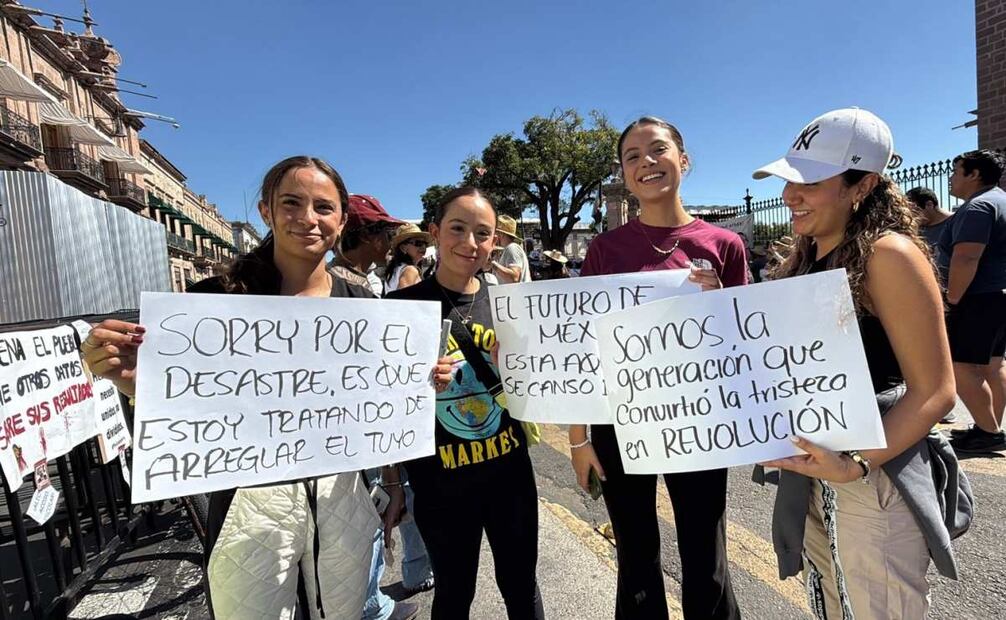 SORRY POR EL
DESASTRE, ES QUE
ESTOY TRATANDO DE
ARREGLAR EL TUYO
EL FUTURO DE
MÉX
ESTA AQ
SE CANSO
Somos la
generación que
convirtió la tristeza
en REVOLUCIÓN
MARKET
NY
'47
EL
OTROS DATOS
SUS RESULTADO